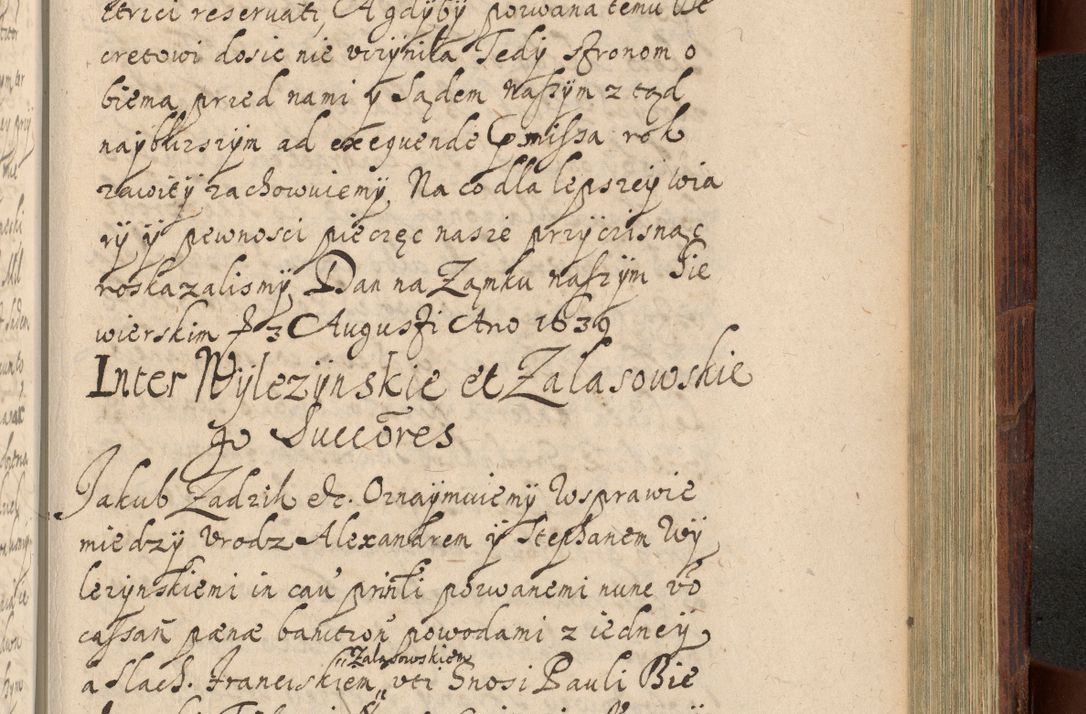 ctrici reservati, A gdyby pozwana temu De
cretowi dosic nie vczyniła Tedy stronom o
biema przed nami y Sądem naszym z tąd
nayblizszym ad exequende pmissa rok
zawity zachowuiemy, Na co dla lepszey wia
ry y pewnosci pieczęc nasze przycisnąc
roskazalismy, Dan na Zamku naszym Sie
wierskim 3 Augusti Ano 1639
Inter Wylezynskie et Zalasowskie
go Succores
Jakub Zadzik etc. Oznaymuiemy W sprawie
miedzy Vrodz Alexandrem y Stephanem Wy
lezynskiemi in cau prinli pozwanemi nunc vo
cassan pænæ banition powodami z iedney
a Slach. Franciskiem „Zalasowskiem„ vti Gnosi Pauli Bie